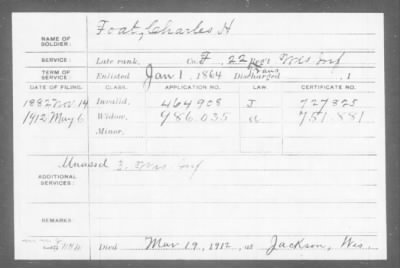 NAME OF SOLDIER: Foat, Charles H
SERVICE: Late rank, Co. F, 22 Reg't Wis Inf
TERM OF SERVICE: Enlisted Jan 1, 1864 Discharged , 1
DATE OF FILING. CLASS. APPLICATION NO. LAW. CERTIFICATE NO.
1882 Nov 14 Invalid, 464908 J 727325
1912 May 6 Widow, 986.035 a 751881
Minor,
ADDITIONAL SERVICES: Unassd 3 Wis Inf
REMARKS:
Died Mar 19, 1912, at Jackson, Wis.